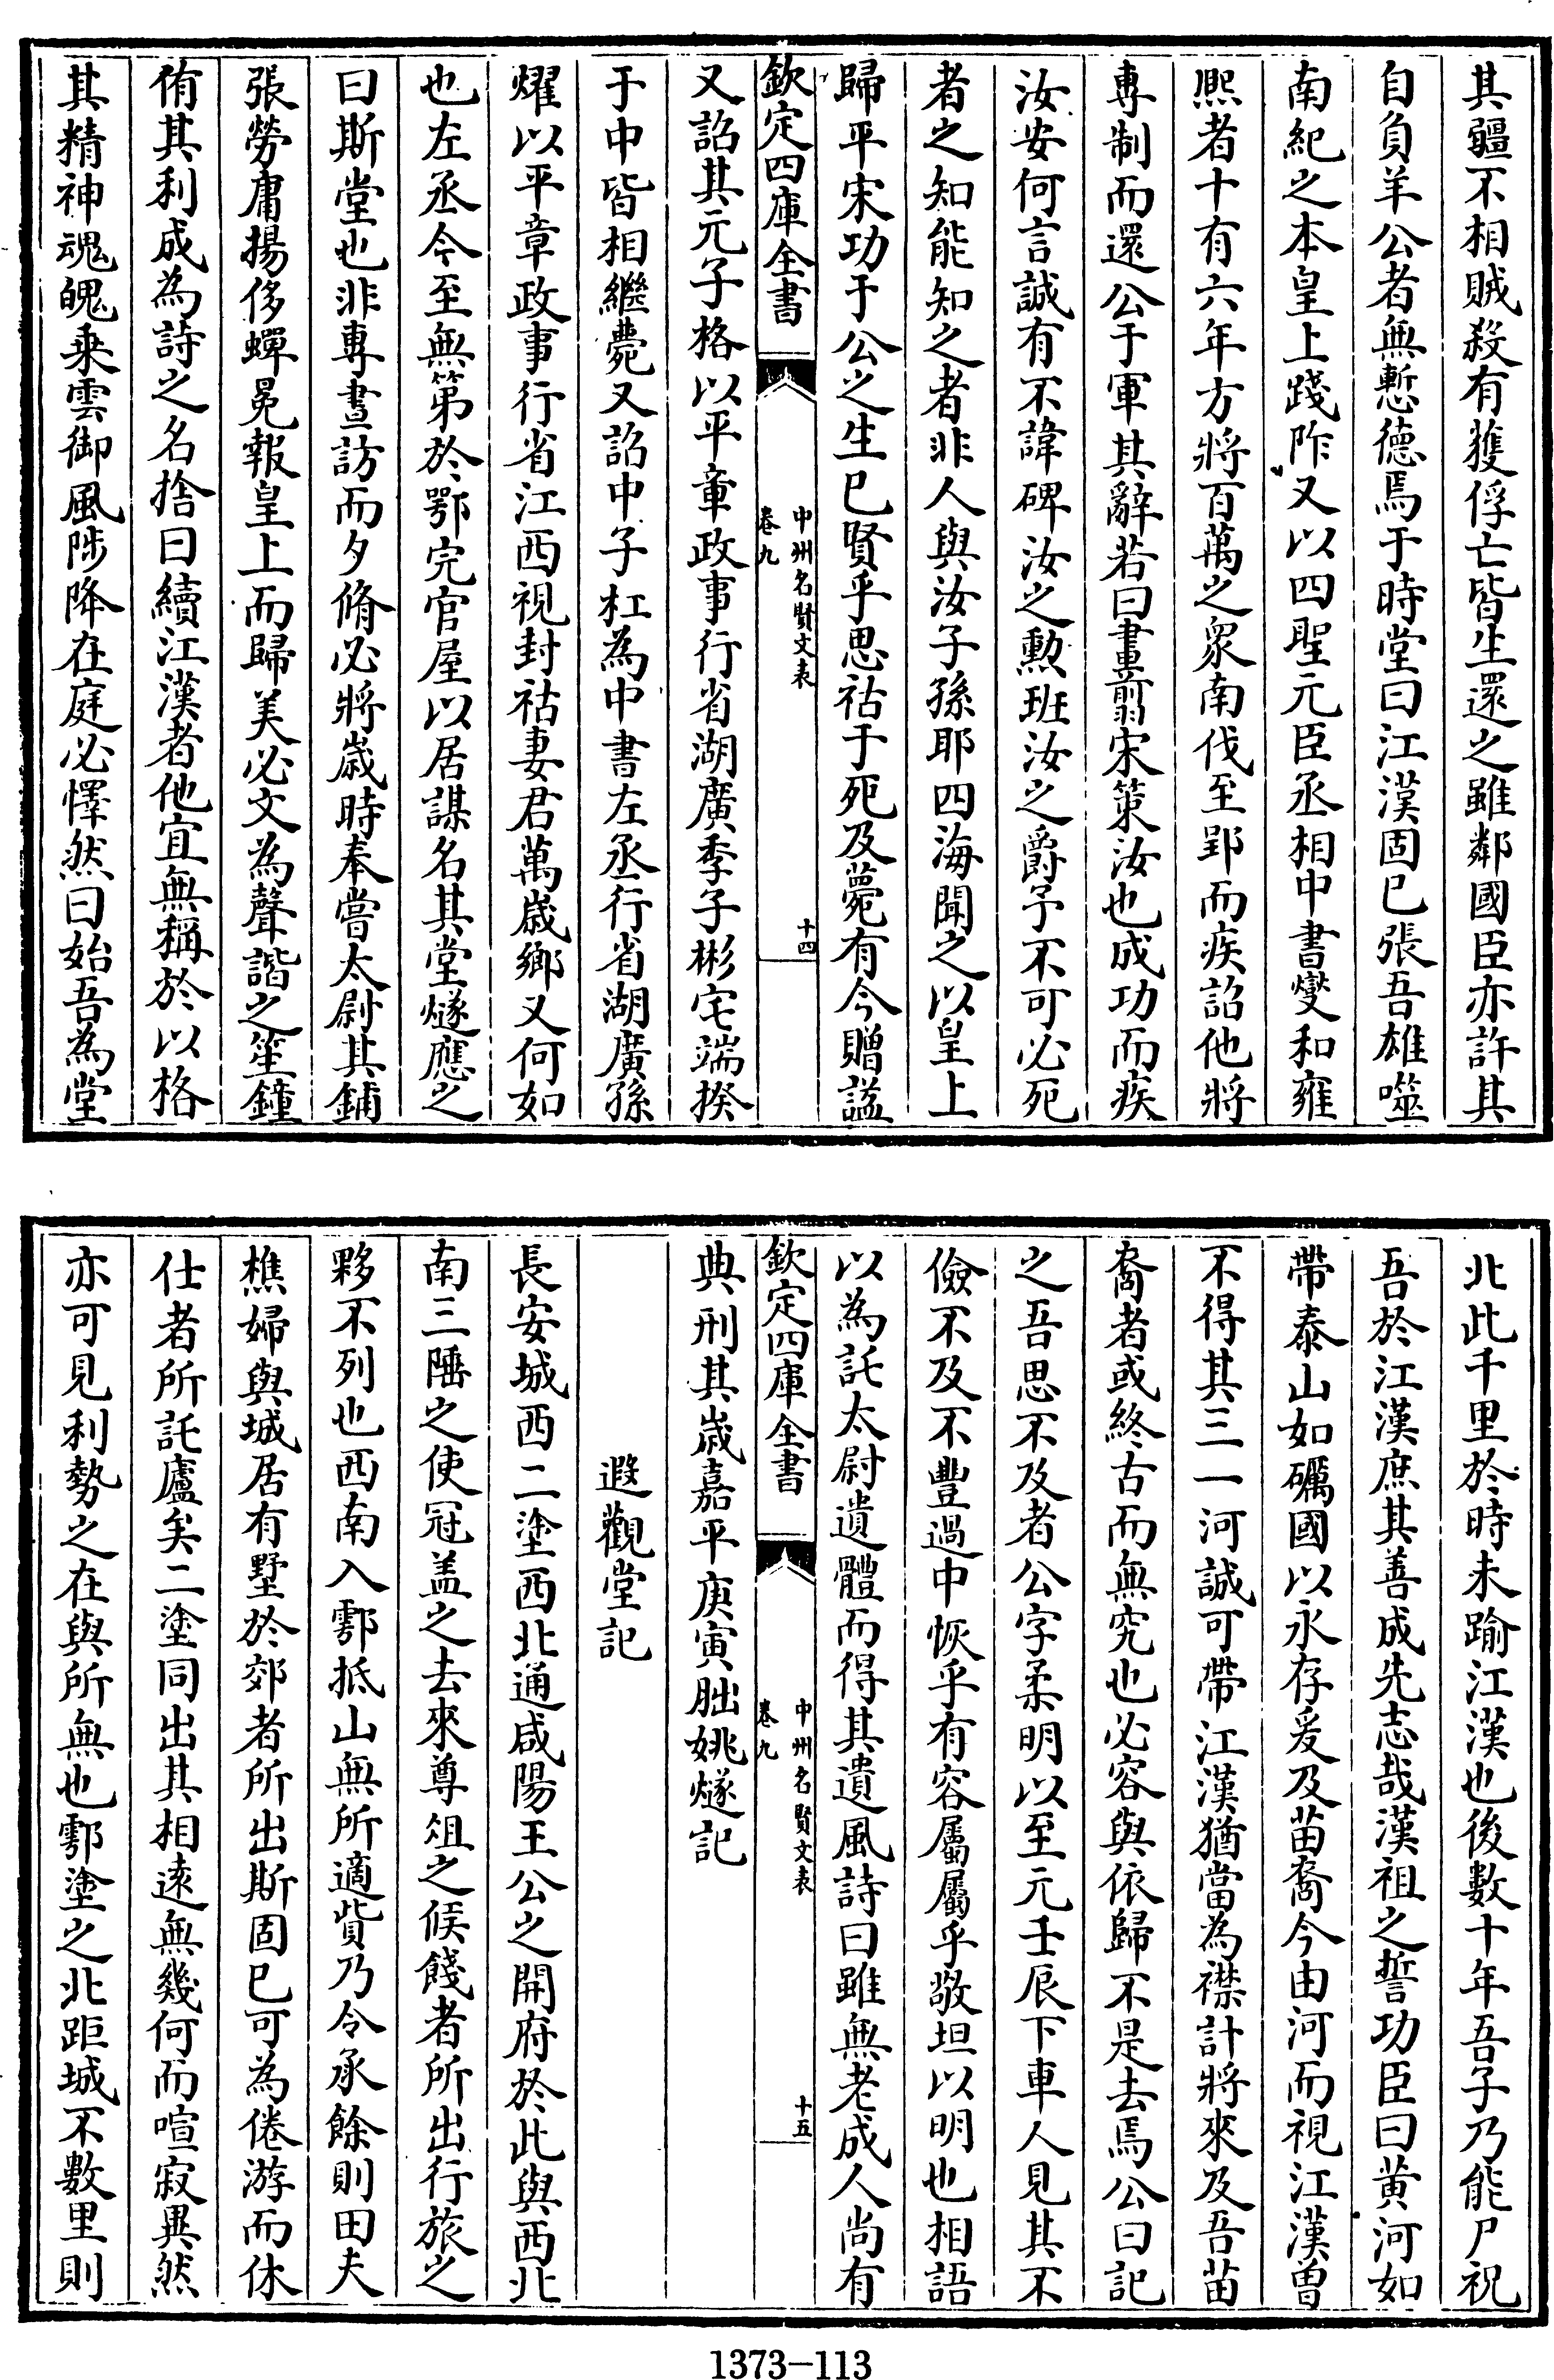 其疆不相賊殺有獲俘亡皆生還之雖鄰國臣亦許其
自負羊公者無慙德焉于時堂曰江漢固已張吾雄噬
南紀之本皇上踐阼又以四聖元臣丞相中書燮和雍
熈者十有六年方將百萬之衆南伐至郢而疾詔他將
專制而還公于軍其辭若曰畫翦宋策汝也成功而疾
汝安何言誠有不諱碑汝之勲班汝之爵予不可必死
者之知能知之者非人與汝子孫耶四海聞之以皇上
歸平宋功于公之生已賢乎思祜于死及薨有今贈諡
欽定四庫全書
中州名賢文表
卷九
十四
又詔其元子格以平章政事行省湖廣季子彬宅端揆
于中皆相繼薨又詔中子杠為中書左丞行省湖廣孫
燿以平章政事行省江西視封祜妻君萬歲鄉又何如
也左丞今至無第於鄂完官屋以居謀名其堂燧應之
曰斯堂也非專晝訪而夕脩必將歲時奉嘗太尉其鋪
張勞庸揚侈蟬冕報皇上而歸美必文為聲諧之笙鐘
侑其利成為詩之名捨曰續江漢者他宜無稱於以格
其精神魂魄乗雲御風陟降在庭必懌然曰始吾為堂
北此千里於時未踰江漢也後數十年吾子乃能尸祝
吾於江漢庶其善成先志哉漢祖之誓功臣曰黄河如
帶泰山如礪國以永存爰及苗裔今由河而視江漢曽
不得其三一河誠可帶江漢猶當為襟計將來及吾苗
裔者或終古而無究也必容與依歸不是去焉公曰記
之吾思不及者公字柔明以至元壬辰下車人見其不
儉不及不豐過中恢乎有容屬屬乎敬坦以明也相語
以為託太尉遺體而得其遺風詩曰雖無老成人尚有
欽定四庫全書
中州名賢文表
卷九
十五
典刑其歲嘉平庚寅朏姚燧記
遐觀堂記
長安城西二塗西北通咸陽王公之開府於此與西北
南三陲之使冠盖之去來尊俎之候餞者所出行旅之
夥不列也西南入鄠抵山無所適貲乃令承餘則田夫
樵婦與城居有墅於郊者所出斯固已可為倦游而休
仕者所託廬矣二塗同出其相逺無幾何而喧寂異然
亦可見利勢之在與所無也鄠塗之北距城不數里則
1373-113